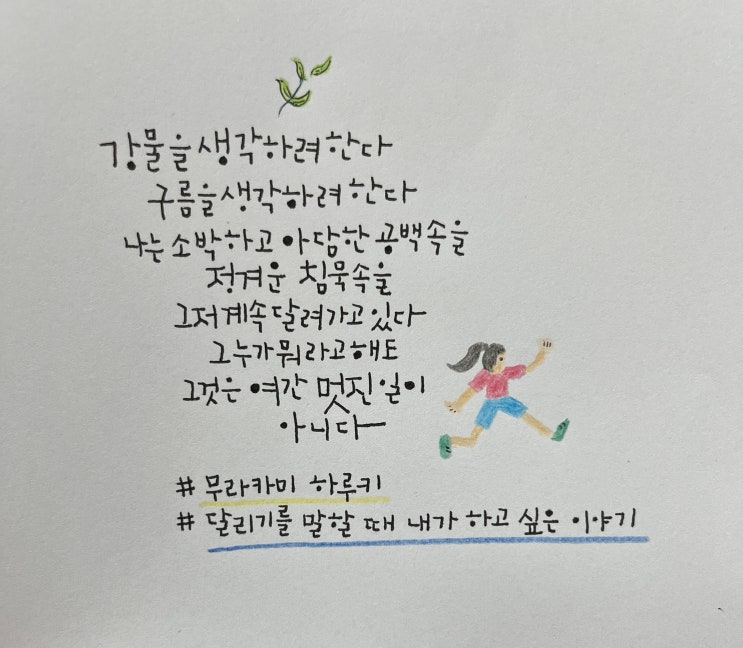 강물을 생각하려 한다
구름을 생각하려 한다
나는 소박하고 아담한 공백속을
정겨운 침묵속을
그저 계속 달려가고 있다
그 누가 뭐라고 해도
그것은 여간 멋진 일이
아니다
# 무라카미 하루키
# 달리기를 말할 때 내가 하고 싶은 이야기